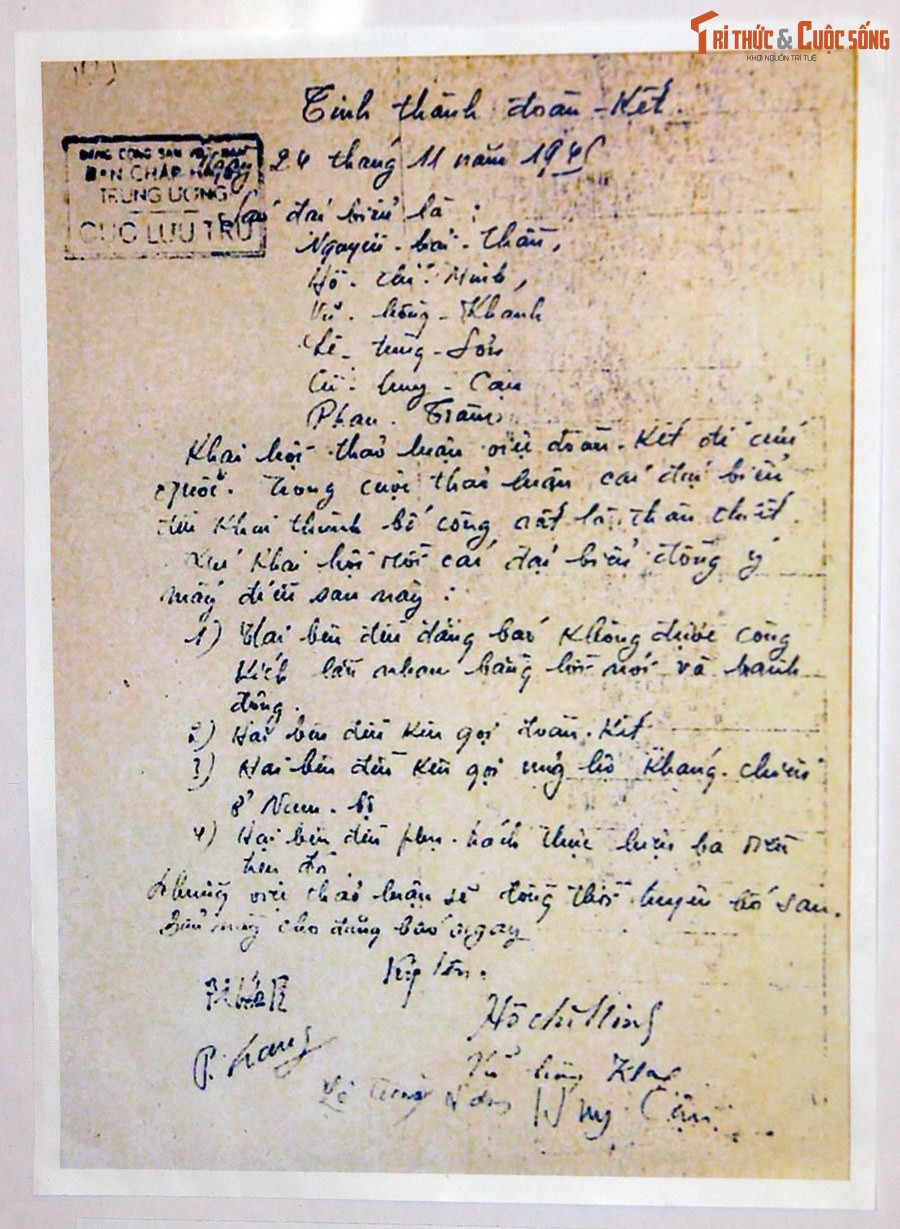 TRI THỨC & CUỘC SỐNG
KHƠI NGUỒN TRÍ TUỆ
Tinh thành đoàn-Kết.
ĐẢNG CỘNG SẢN VIỆT NAM
BAN CHẤP HÀNH
TRUNG ƯƠNG
CỤC LƯU TRỮ
Ngày 24 tháng 11 năm 1945
Các đại biểu là:
Nguyễn-hải-Thần,
Hồ-chí-Minh,
Vũ-hồng-Khanh
Lê-tùng-Sơn
Cù-huy-Cận
Phan-Trâm
Khai hội thảo luận việc đoàn-Kết để cứu
quốc. Trong cuộc thảo luận các đại biểu
đều Khai thành bố công rất là thân thiết.
Khai hội rồi các đại biểu đồng ý
mấy điều sau này:
1) Hai bên đều đăng báo Không được công
Kích lẫn nhau bằng lời nói và hành
động.
2) Hai bên đều Kêu gọi đoàn-Kết
3) Hai bên đều Kêu gọi ủng hộ Kháng-chiến
ở Nam-bộ
4) Hai bên đều phụ-trách thực hiện ba điều
trên đó.
Những việc thảo luận sẽ đồng thời tuyên bố sau.
này cho đăng báo ngay
Ký tên.
Hồ chí Minh
Vũ hồng Khanh
Lê Tùng Sơn
Huy Cận